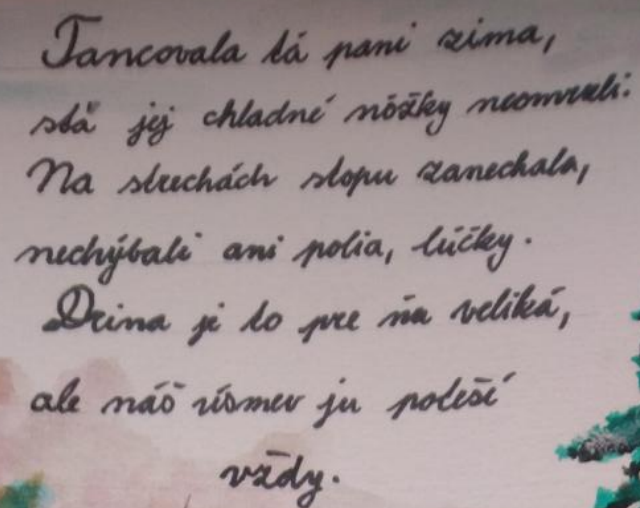 Tancovala tá pani zima,
stä jej chladné nôžky neomrzli.
Na strechách stopu zanechala,
nechýbali ani polia, lúčky.
Drina je to pre ňu veliká,
ale náš úsmev ju poteší
vždy.